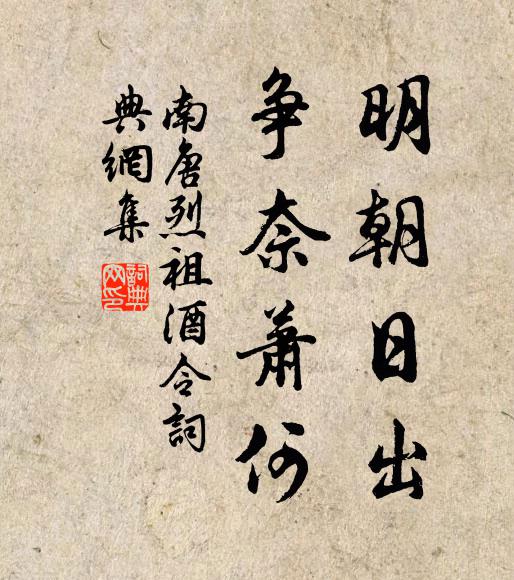 明朝日出
争奈萧何
南唐烈祖酒令詞
典網集
詞典
网印